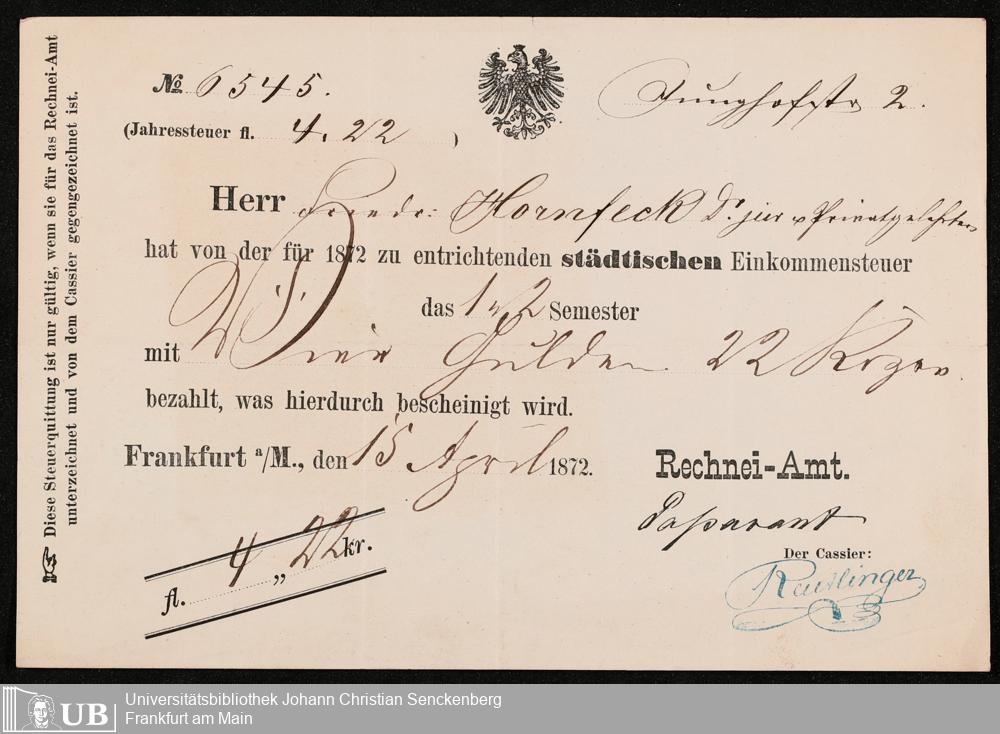 Diese Steuerquittung ist nur gültig, wenn sie für das Rechnei-Amt
unterzeichnet und von dem Cassier gegengezeichnet ist.
No 6545.
Junghofstr 2.
(Jahressteuer fl. 4.22 )
Herr Friedr: Hornfeck Dr. jur u Privatgelehrter
hat von der für 1872 zu entrichtenden städtischen Einkommensteuer
das 1 u 2 Semester
mit Vier Gulden 22 Kreuzer
bezahlt, was hierdurch bescheinigt wird.
Frankfurt a/M., den 15 April 1872.
Rechnei-Amt.
Passavant
Der Cassier:
Reutlinger
fl. 4 „ 22 kr.
UB
Universitätsbibliothek Johann Christian Senckenberg
Frankfurt am Main